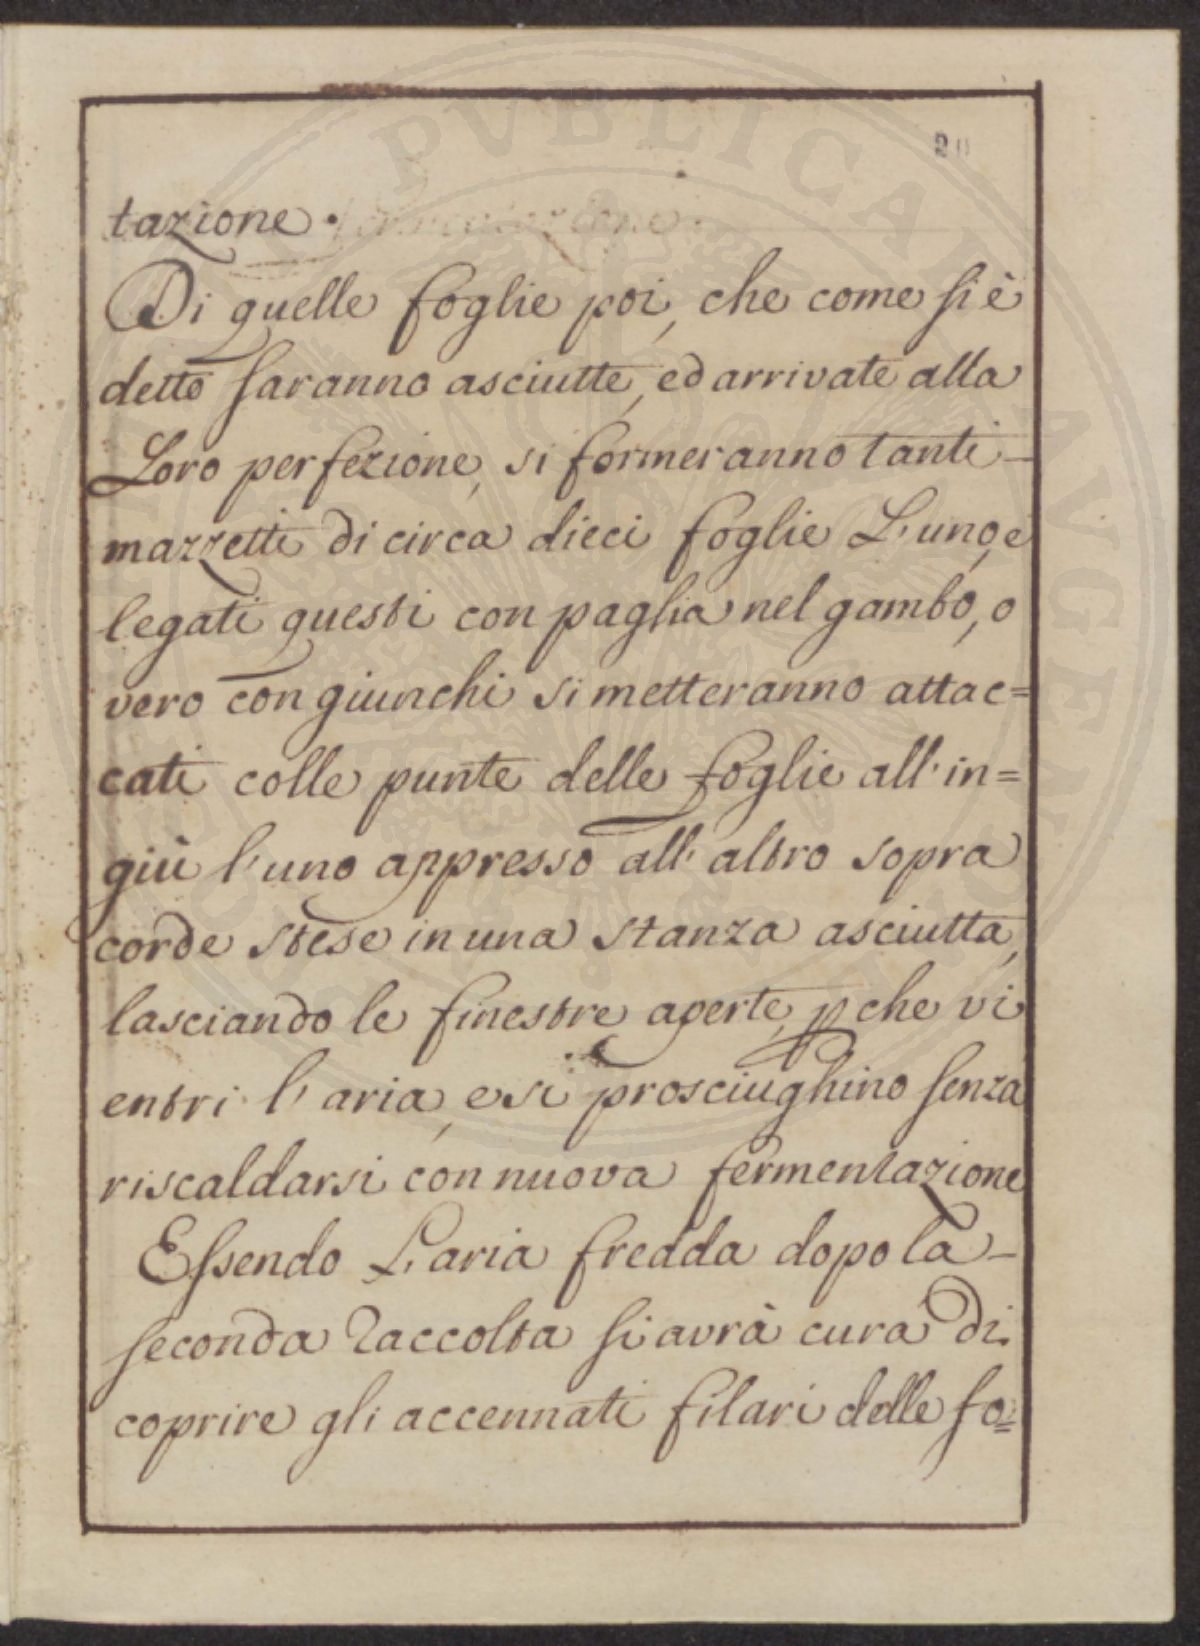 20
tazione.
Di quelle foglie poi, che come si è
detto saranno asciutte, ed arrivate alla
Loro perfezione, si formeranno tanti-
mazzetti di circa dieci foglie L'uno, e
legati questi con paglia nel gambo, o
vero con giunchi si metteranno attac=
cati colle punte delle foglie all'in=
giù l'uno appresso all'altro sopra
corde stese in una stanza asciutta,
lasciando le finestre aperte, pche vi
entri l'aria, e si prosciughino senza
riscaldarsi con nuova fermentazione
Essendo L'aria fredda dopo la-
seconda Raccolta si avrà cura di
coprire gli accennati filari delle fo=